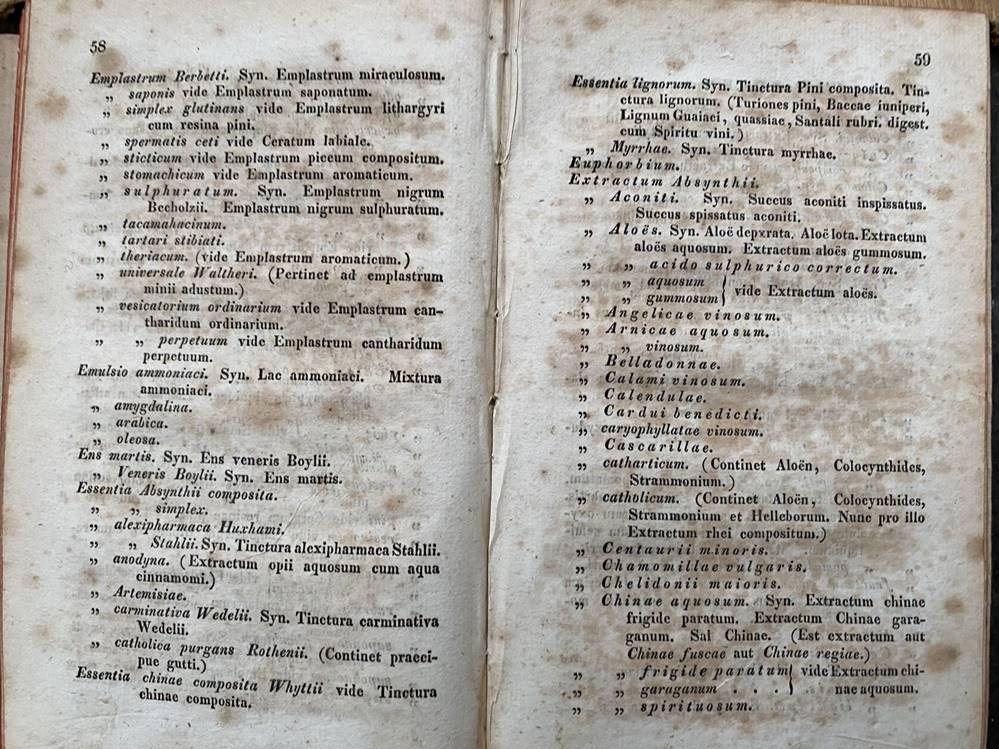 58
Emplastrum Berbetti. Syn. Emplastrum miraculosum.
„ saponis vide Emplastrum saponatum.
„ simplex glutinans vide Emplastrum lithargyri
cum resina pini.
„ spermatis ceti vide Ceratum labiale.
„ sticticum vide Emplastrum piceum compositum.
„ stomachicum vide Emplastrum aromaticum.
„ sulphuratum. Syn. Emplastrum nigrum
Becholzii. Emplastrum nigrum sulphuratum.
„ tacamahacinum.
„ tartari stibiati.
„ theriacum. (vide Emplastrum aromaticum.)
„ universale Waltheri. (Pertinet ad emplastrum
minii adustum.)
„ vesicatorium ordinarium vide Emplastrum can-
tharidum ordinarium.
„ „ perpetuum vide Emplastrum cantharidum
perpetuum.
Emulsio ammoniaci. Syn. Lac ammoniaci. Mixtura
ammoniaci.
„ amygdalina.
„ arabica.
„ oleosa.
Ens martis. Syn. Ens veneris Boylii.
„ Veneris Boylii. Syn. Ens martis.
Essentia Absynthii composita.
„ „ simplex.
„ alexipharmaca Huxhami.
„ „ Stahlii. Syn. Tinctura alexipharmaca Stahlii.
„ anodyna. (Extractum opii aquosum cum aqua
cinnamomi.)
„ Artemisiae.
„ carminativa Wedelii. Syn. Tinctura carminativa
Wedelii.
„ catholica purgans Rothenii. (Continet praeci-
pue gutti.)
Essentia chinae composita Whyttii vide Tinctura
chinae composita.
59
Essentia lignorum. Syn. Tinctura Pini composita. Tin-
ctura lignorum. (Turiones pini, Baccae iuniperi,
Lignum Guaiaci, quassiae, Santali rubri. digest.
cum Spiritu vini.)
„ Myrrhae. Syn. Tinctura myrrhae.
Euphorbium.
Extractum Absynthii.
„ Aconiti. Syn. Succus aconiti inspissatus.
Succus spissatus aconiti.
„ Aloës. Syn. Aloë depxrata. Aloë lota. Extractum
aloës aquosum. Extractum aloës gummosum.
„ „ acido sulphurico correctum.
„ „ aquosum
„ „ gummosum } vide Extractum aloës.
„ Angelicae vinosum.
„ Arnicae aquosum.
„ „ vinosum.
„ Belladonnae.
„ Calami vinosum.
„ Calendulae.
„ Cardui benedicti.
„ caryophyllatae vinosum.
„ Cascarillae.
„ catharticum. (Continet Aloën, Colocynthides,
Strammonium.)
„ catholicum. (Continet Aloën, Colocynthides,
Strammonium et Helleborum. Nunc pro illo
Extractum rhei compositum.)
„ Centaurii minoris.
„ Chamomillae vulgaris.
„ Chelidonii maioris.
„ Chinae aquosum. Syn. Extractum chinae
frigide paratum. Extractum Chinae gara-
ganum. Sal Chinae. (Est extractum aut
Chinae fuscae aut Chinae regiae.)
„ „ frigide paratum } vide Extractum chi-
„ „ garaganum . . . } nae aquosum.
„ „ spirituosum.